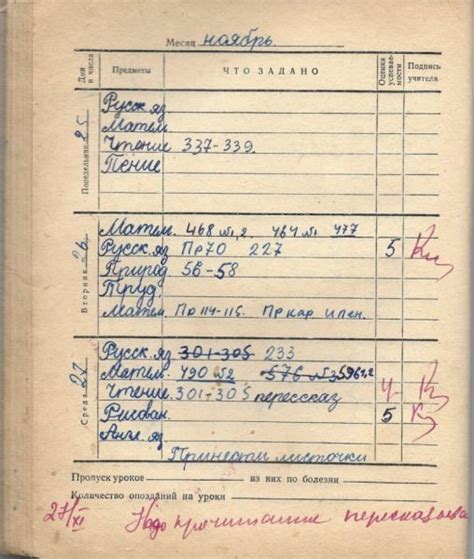 Месяц ноябрь.
Дни и числа Предметы ЧТО ЗАДАНО Оценка успеваемости Подпись учителя
Понедельник 25
Русск. яз
Матем.
Чтение 337-339.
Пение
Вторник 26
Матем. 468 №1,2 464 №1 477
Русск. яз Пр70 227 5
Природ 56-58
Труд.
Матем. По 114-115. Пр кар.
Среда 27
Русск. яз 301-305 233
Матем. 490 №2 576
Чтение 301-305 перессказ 4
Рисован. 5
Англ. яз
Принести листочки
Пропуск уроков из них по болезни
Количество опозданий на уроки
27/XI Надо